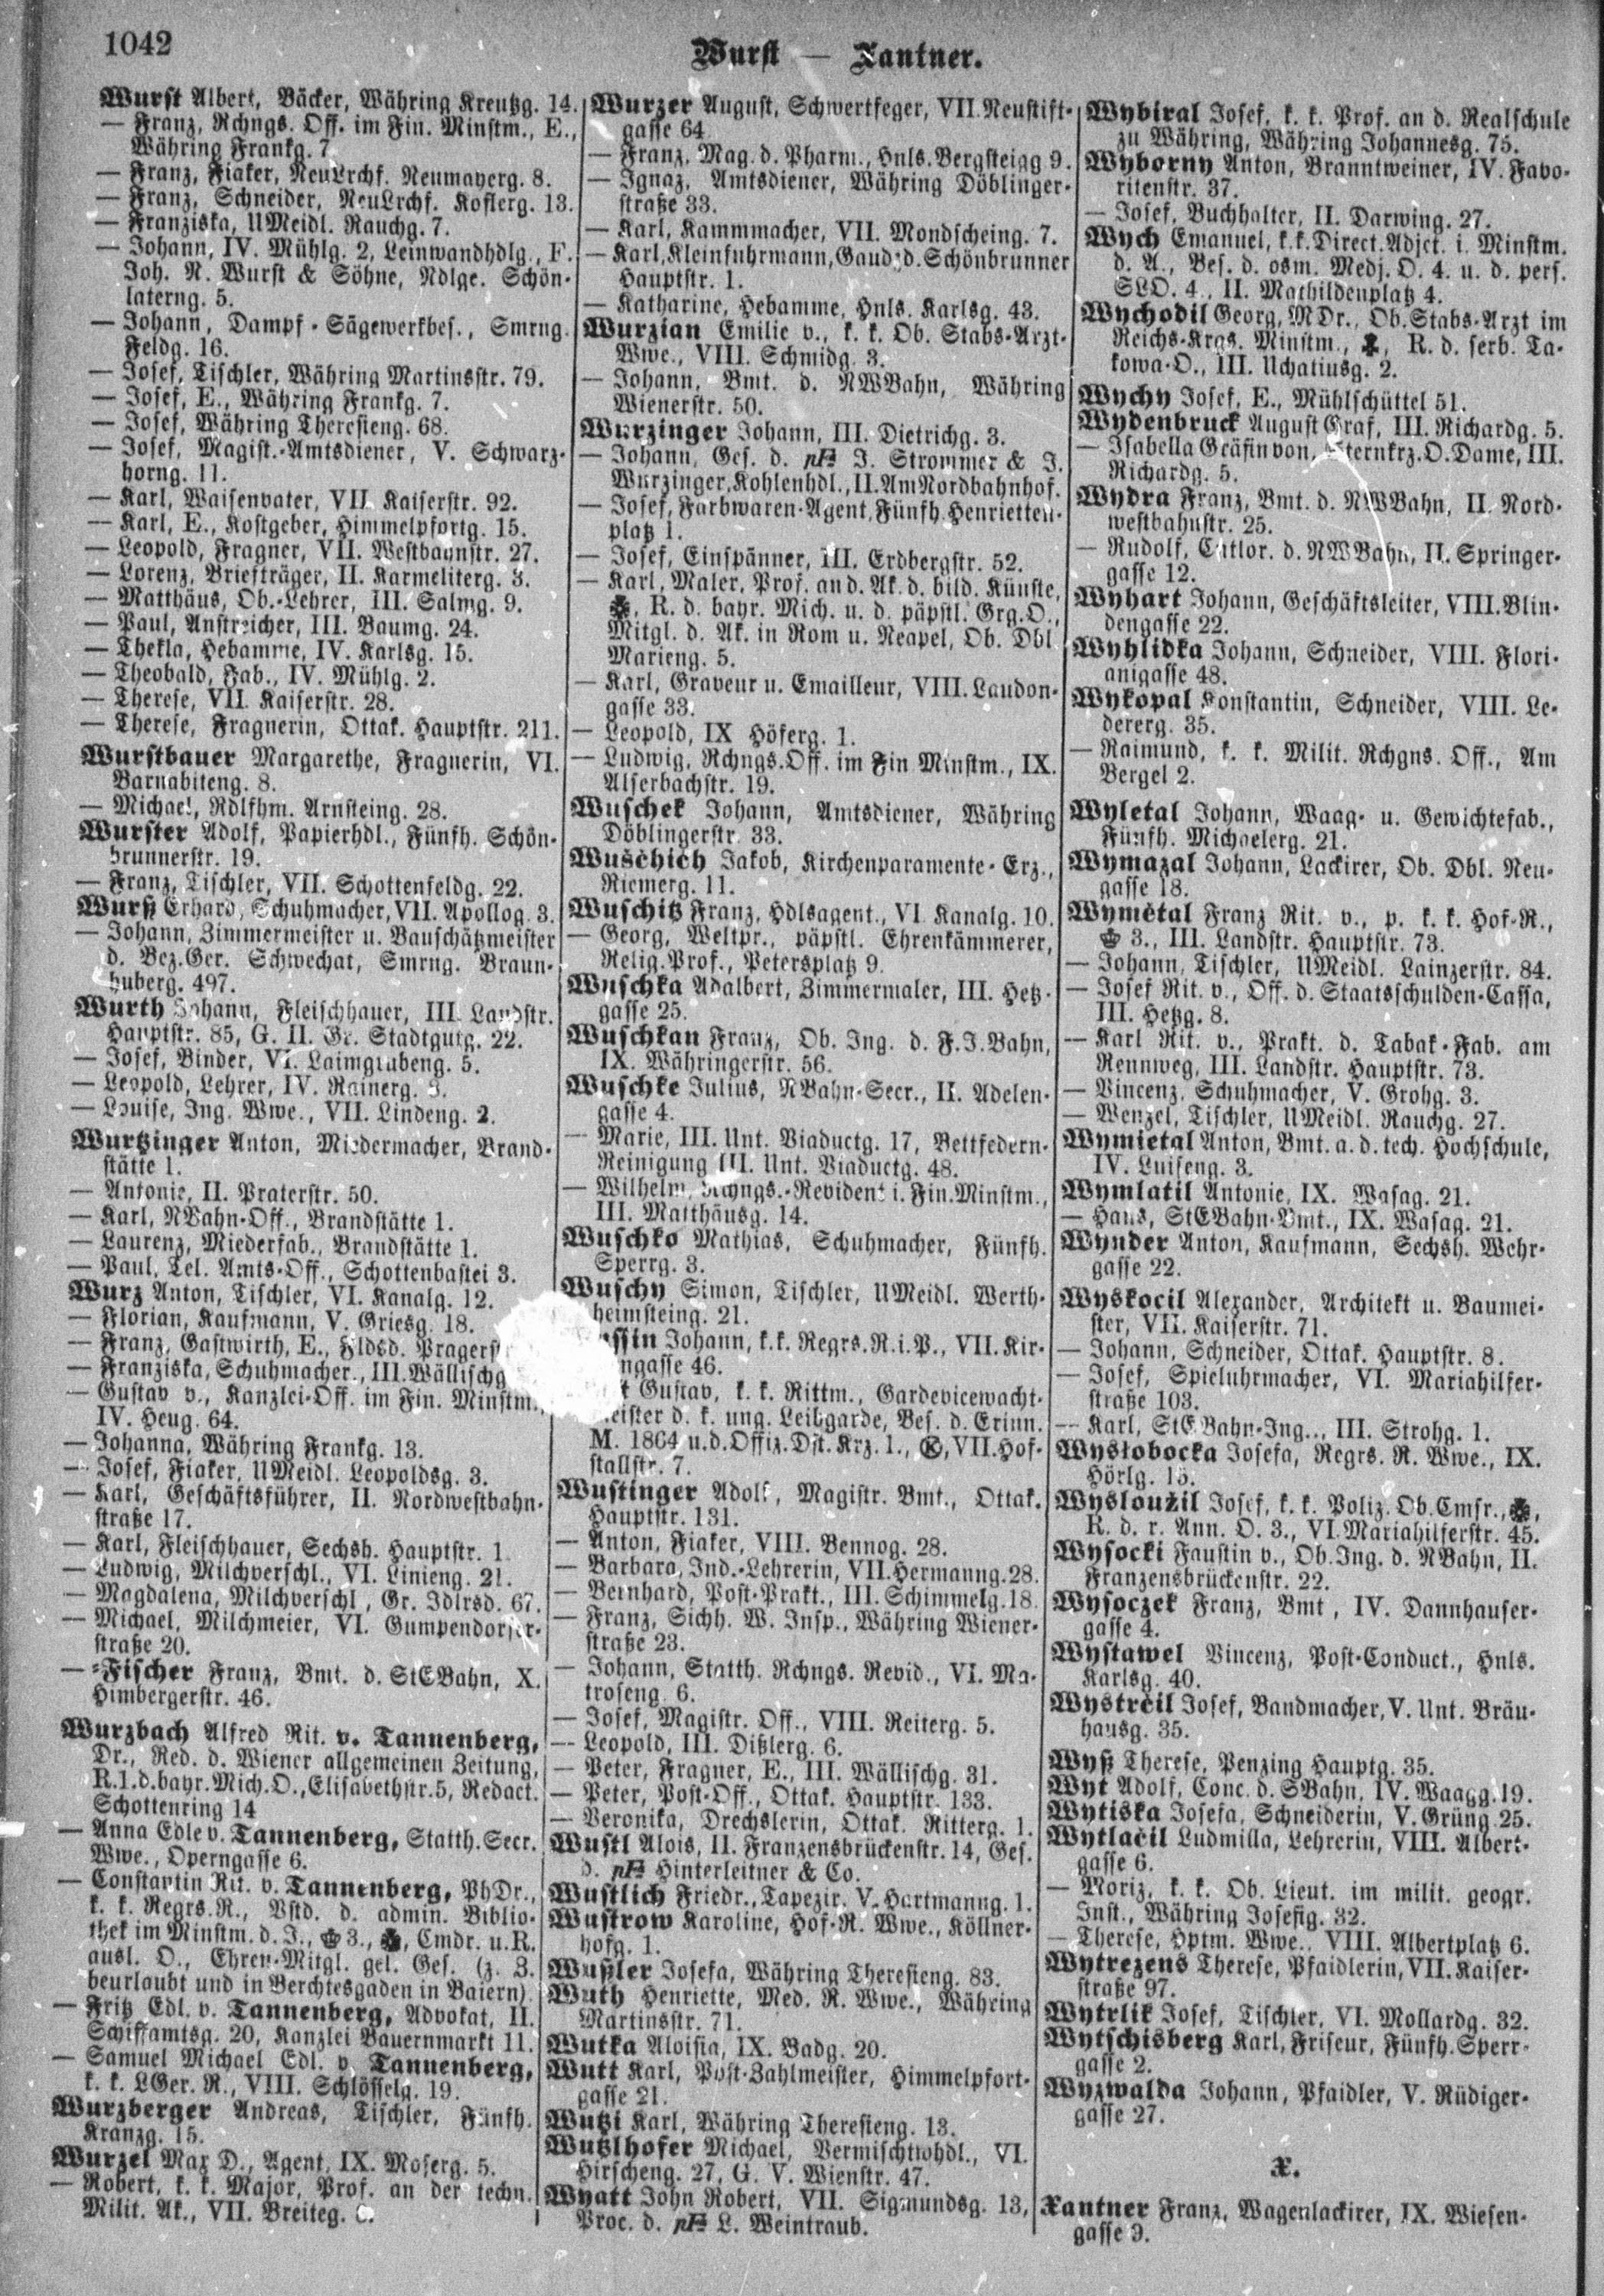 1042
Wurst — Xantner.
Wurst Albert, Bäcker, Währing Kreutzg. 14.
— Franz, Rchngs. Off. im Fin. Minstm., E.,
Währing Frankg. 7.
— Franz, Fiaker, NeuLrchf. Neumayerg. 8.
— Franz, Schneider, NeuLrchf. Koflerg. 13.
— Franziska, UMeidl. Rauchg. 7.
— Johann, IV. Mühlg. 2, Leinwandhdlg., F.
Joh. N. Wurst & Söhne, Ndlge. Schön-
laterng. 5.
— Johann, Dampf-Sägewerkbes., Smrng.
Feldg. 16.
— Josef, Tischler, Währing Martinsstr. 79.
— Josef, E., Währing Frankg. 7.
— Josef, Währing Theresieng. 68.
— Josef, Magist.-Amtsdiener, V. Schwarz-
horng. 11.
— Karl, Waisenvater, VII. Kaiserstr. 92.
— Karl, E., Kostgeber, Himmelpfortg. 15.
— Leopold, Fragner, VII. Westbahnstr. 27.
— Lorenz, Briefträger, II. Karmeliterg. 3.
— Matthäus, Ob.-Lehrer, III. Salmg. 9.
— Paul, Anstreicher, III. Baumg. 24.
— Thekla, Hebamme, IV. Karlsg. 15.
— Theobald, Fab., IV. Mühlg. 2.
— Therese, VII. Kaiserstr. 28.
— Therese, Fragnerin, Ottak. Hauptstr. 211.
Wurstbauer Margarethe, Fragnerin, VI.
Barnabiteng. 8.
— Michael, Rdlfhm. Arnsteing. 28.
Wurster Adolf, Papierhdl., Fünfh. Schön-
brunnerstr. 19.
— Franz, Tischler, VII. Schottenfeldg. 22.
Wurß Erhard, Schuhmacher, VII. Apollog. 3.
— Johann, Zimmermeister u. Bauschätzmeister
d. Bez.Ger. Schwechat, Smrng. Braun-
huberg. 497.
Wurth Johann, Fleischhauer, III. Landstr.
Hauptstr. 85, G. II. Gr. Stadtgutg. 22.
— Josef, Binder, VI. Laimgrubeng. 5.
— Leopold, Lehrer, IV. Rainerg.
— Louise, Ing. Wwe., VII. Lindeng. 2.
Wurtzinger Anton, Miedermacher, Brand-
stätte 1.
— Antonie, II. Praterstr. 50.
— Karl, NBahn-Off., Brandstätte 1.
— Laurenz, Miederfab., Brandstätte 1.
— Paul, Tel. Amts-Off., Schottenbastei 3.
Wurz Anton, Tischler, VI. Kanalg. 12.
— Florian, Kaufmann, V. Griesg. 18.
— Franz, Gastwirth, E., Fldsd.
— Franziska, Schuhmacher., III.
— Gustav v., Kanzlei-Off. im Fin. Minstm.,
IV. Heug. 64.
— Johanna, Währing Frankg. 13.
— Josef, Fiaker, UMeidl. Leopoldsg. 3.
— Karl, Geschäftsführer, II. Nordwestbahn-
straße 17.
— Karl, Fleischhauer, Sechsh. Hauptstr. 1
— Ludwig, Milchverschl., VI. Linieng. 21.
— Magdalena, Milchverschl, Gr. Jdlrsd. 67.
— Michael, Milchmeier, VI. Gumpendorfer-
straße 20.
— -Fischer Franz, Bmt. d. StEBahn, X.
Himbergerstr. 46.
Wurzbach Alfred Rit. v. Tannenberg,
Dr., Red. d. Wiener allgemeinen Zeitung,
R.1.d.bayr.Mich.O., Elisabethstr.5, Redact.
Schottenring 14
— Anna Edle v. Tannenberg, Statth.Secr.
Wwe., Operngasse 6.
— Constantin Rit. v. Tannenberg, PhDr.,
k. k. Regrs.R., Vstd. d. admin. Biblio-
thek im Minstm. d. J., 3., Cmdr. u.R.
ausl. O., Ehren-Mitgl. gel. Ges. (z. Z.
beurlaubt und in Berchtesgaden in Baiern).
— Fritz Edl. v. Tannenberg, Advokat, II.
Schiffamtsg. 20, Kanzlei Bauernmarkt 11.
— Samuel Michael Edl. v. Tannenberg,
k. k. LGer. R., VIII. Schlösselg. 19.
Wurzberger Andreas, Tischler, Fünfh.
Kranzg. 15.
Wurzel Max D., Agent, IX. Moserg. 5.
— Robert, k. k. Major, Prof. an der techn.
Milit. Ak., VII. Breiteg.
Wurzer August, Schwertfeger, VII. Neustift-
gasse 64
— Franz, Mag. d. Pharm., Hnls. Bergsteigg 9.
— Ignaz, Amtsdiener, Währing Döblinger-
straße 33.
— Karl, Kammmacher, VII. Mondscheing. 7.
— Karl, Kleinfuhrmann, Gaudzd. Schönbrunner
Hauptstr. 1.
— Katharine, Hebamme, Hnls. Karlsg. 43.
Wurzian Emilie v., k. k. Ob. Stabs-Arzt-
Wwe., VIII. Schmidg. 3.
— Johann, Bmt. d. NWBahn, Währing
Wienerstr. 50.
Wurzinger Johann, III. Dietrichg. 3.
— Johann, Ges. d. pF. J. Strommer & J.
Wurzinger, Kohlenhdl., II. Am Nordbahnhof.
— Josef, Farbwaren-Agent, Fünfh. Henrietten-
platz 1.
— Josef, Einspänner, III. Erdbergstr. 52.
— Karl, Maler, Prof. an d. Ak. d. bild. Künste,
R. d. bayr. Mich. u. d. päpstl. Grg.O.,
Mitgl. d. Ak. in Rom u. Neapel, Ob. Dbl
Marieng. 5.
— Karl, Graveur u. Emailleur, VIII. Laudon-
gasse 33.
— Leopold, IX Höferg. 1.
— Ludwig, Rchngs.Off. im Fin Minstm., IX.
Alserbachstr. 19.
Wuschek Johann, Amtsdiener, Währing
Döblingerstr. 33.
Wuschich Jakob, Kirchenparamente-Erz.,
Riemerg. 11.
Wuschitz Franz, Hdlsagent., VI. Kanalg. 10.
— Georg, Weltpr., päpstl. Ehrenkämmerer,
Relig.Prof., Petersplatz 9.
Wuschka Adalbert, Zimmermaler, III. Hetz-
gasse 25.
Wuschkan Franz, Ob. Ing. d. F.J.Bahn,
IX. Währingerstr. 56.
Wuschke Julius, NBahn-Secr., II. Adelen-
gasse 4.
— Marie, III. Unt. Viaductg. 17, Bettfedern-
Reinigung III. Unt. Viaductg. 48.
— Wilhelm, Rchngs.-Revident i. Fin.Minstm.,
III. Matthäusg. 14.
Wuschko Mathias, Schuhmacher, Fünfh.
Sperrg. 3.
Wuschy Simon, Tischler, UMeidl. Werth-
heimsteing. 21.
Johann, k.k. Regrs.R.i.P., VII. Kir-
ngasse 46.
Gustav, k. k. Rittm., Gardevicewacht-
meister d. k. ung. Leibgarde, Bes. d. Erinn.
M. 1864 u.d.Offiz.Dst.Krz. 1., VII. Hof-
stallstr. 7.
Wustinger Adolf, Magistr. Bmt., Ottak.
Hauptstr. 131.
— Anton, Fiaker, VIII. Bennog. 28.
— Barbara, Ind.-Lehrerin, VII. Hermanng. 28.
— Bernhard, Post-Prakt., III. Schimmelg. 18
— Franz, Sichh. W. Insp., Währing Wiener-
straße 23.
— Johann, Statth. Rchngs. Revid., VI. Ma-
troseng. 6.
— Josef, Magistr. Off., VIII. Reiterg. 5.
— Leopold, III. Dißlerg. 6.
— Peter, Fragner, E., III. Wällischg. 31.
— Peter, Post-Off., Ottak. Hauptstr. 133.
— Veronika, Drechslerin, Ottak. Ritterg. 1.
Wustl Alois, II. Franzensbrückenstr. 14, Ges.
d. pF. Hinterleitner & Co.
Wustlich Friedr., Tapezir. V. Hartmanng. 1.
Wustrow Karoline, Hof-R. Wwe., Köllner-
hofg. 1.
Wußler Josefa, Währing Theresieng. 83.
Wuth Henriette, Med. R. Wwe., Währing
Martinsstr. 71.
Wutka Aloisia, IX. Badg. 20.
Wutt Karl, Post-Zahlmeister, Himmelpfort-
gasse 21.
Wutzi Karl, Währing Theresieng. 13.
Wutzlhofer Michael, Vermischtwhdl., VI.
Hirscheng. 27, G. V. Wienstr. 47.
Wyatt John Robert, VII. Sigmundsg. 13,
Proc. d. pF. L. Weintraub.
Wybiral Josef, k. k. Prof. an d. Realschule
zu Währing, Währing Johannesg. 75.
Wyborny Anton, Branntweiner, IV. Favo-
ritenstr. 37.
— Josef, Buchhalter, II. Darwing. 27.
Wych Emanuel, k.k. Direct.Adjct. i. Minstm.
d. A., Bes. d. osm. Medj. O. 4. u. d. pers.
SLO. 4., II. Mathildenplatz 4.
Wychodil Georg, MDr., Ob.Stabs-Arzt im
Reichs-Krgs. Minstm., R. d. serb. Ta-
kowa-O., III. Uchatiusg. 2.
Wychy Josef, E., Mühlschüttel 51.
Wydenbruck August Graf, III. Richardg. 5.
— Isabella Gräfin von, Sternkrz.O.Dame, III.
Richardg. 5.
Wydra Franz, Bmt. d. NWBahn, II. Nord-
westbahnstr. 25.
— Rudolf, Cntlor. d. NWBahn, II. Springer-
gasse 12.
Wyhart Johann, Geschäftsleiter, VIII. Blin-
dengasse 22.
Wyhlidka Johann, Schneider, VIII. Flori-
anigasse 48.
Wykopal Konstantin, Schneider, VIII. Le-
dererg. 35.
— Raimund, k. k. Milit. Rchgns. Off., Am
Bergel 2.
Wyletal Johann, Waag- u. Gewichtefab.,
Fünfh. Michaelerg. 21.
Wymazal Johann, Lackirer, Ob. Dbl. Neu-
gasse 18.
Wymětal Franz Rit. v., p. k. k. Hof-R.,
3., III. Landstr. Hauptstr. 73.
— Johann, Tischler, UMeidl. Lainzerstr. 84.
— Josef Rit. v., Off. d. Staatsschulden-Cassa,
III. Hetzg. 8.
— Karl Rit. v., Prakt. d. Tabak-Fab. am
Rennweg, III. Landstr. Hauptstr. 73.
— Vincenz, Schuhmacher, V. Grohg. 3.
— Wenzel, Tischler, UMeidl. Rauchg. 27.
Wymietal Anton, Bmt. a. d. tech. Hochschule,
IV. Luiseng. 3.
Wymlatil Antonie, IX. Wasag. 21.
— Hans, StEBahn-Bmt., IX. Wasag. 21.
Wynder Anton, Kaufmann, Sechsh. Wehr-
gasse 22.
Wyskocil Alexander, Architekt u. Baumei-
ster, VII. Kaiserstr. 71.
— Johann, Schneider, Ottak. Hauptstr. 8.
— Josef, Spieluhrmacher, VI. Mariahilfer-
straße 103.
— Karl, StEBahn-Ing., III. Strohg. 1.
Wysłobocka Josefa, Regrs. R. Wwe., IX.
Hörlg. 15.
Wysloužil Josef, k. k. Poliz. Ob.Cmsr.,
R. d. r. Ann. O. 3., VI. Mariahilferstr. 45.
Wysocki Faustin v., Ob.Ing. d. NBahn, II.
Franzensbrückenstr. 22.
Wysoczek Franz, Bmt, IV. Dannhauser-
gasse 4.
Wystawel Vincenz, Post-Conduct., Hnls.
Karlsg. 40.
Wystrčil Josef, Bandmacher, V. Unt. Bräu-
hausg. 35.
Wyß Therese, Penzing Hauptg. 35.
Wyt Adolf, Conc. d. SBahn, IV. Waagg. 19.
Wytiska Josefa, Schneiderin, V. Grüng. 25.
Wytlačil Ludmilla, Lehrerin, VIII. Albert-
gasse 6.
— Moriz, k. k. Ob. Lieut. im milit. geogr.
Inst., Währing Josefig. 32.
— Therese, Hptm. Wwe., VIII. Albertplatz 6.
Wytrezens Therese, Pfaidlerin, VII. Kaiser-
straße 97.
Wytrlik Josef, Tischler, VI. Mollardg. 32.
Wytschisberg Karl, Friseur, Fünfh. Sperr-
gasse 2.
Wyzwalda Johann, Pfaidler, V. Rüdiger-
gasse 27.
X.
Xantner Franz, Wagenlackirer, IX. Wiesen-
gasse 9.